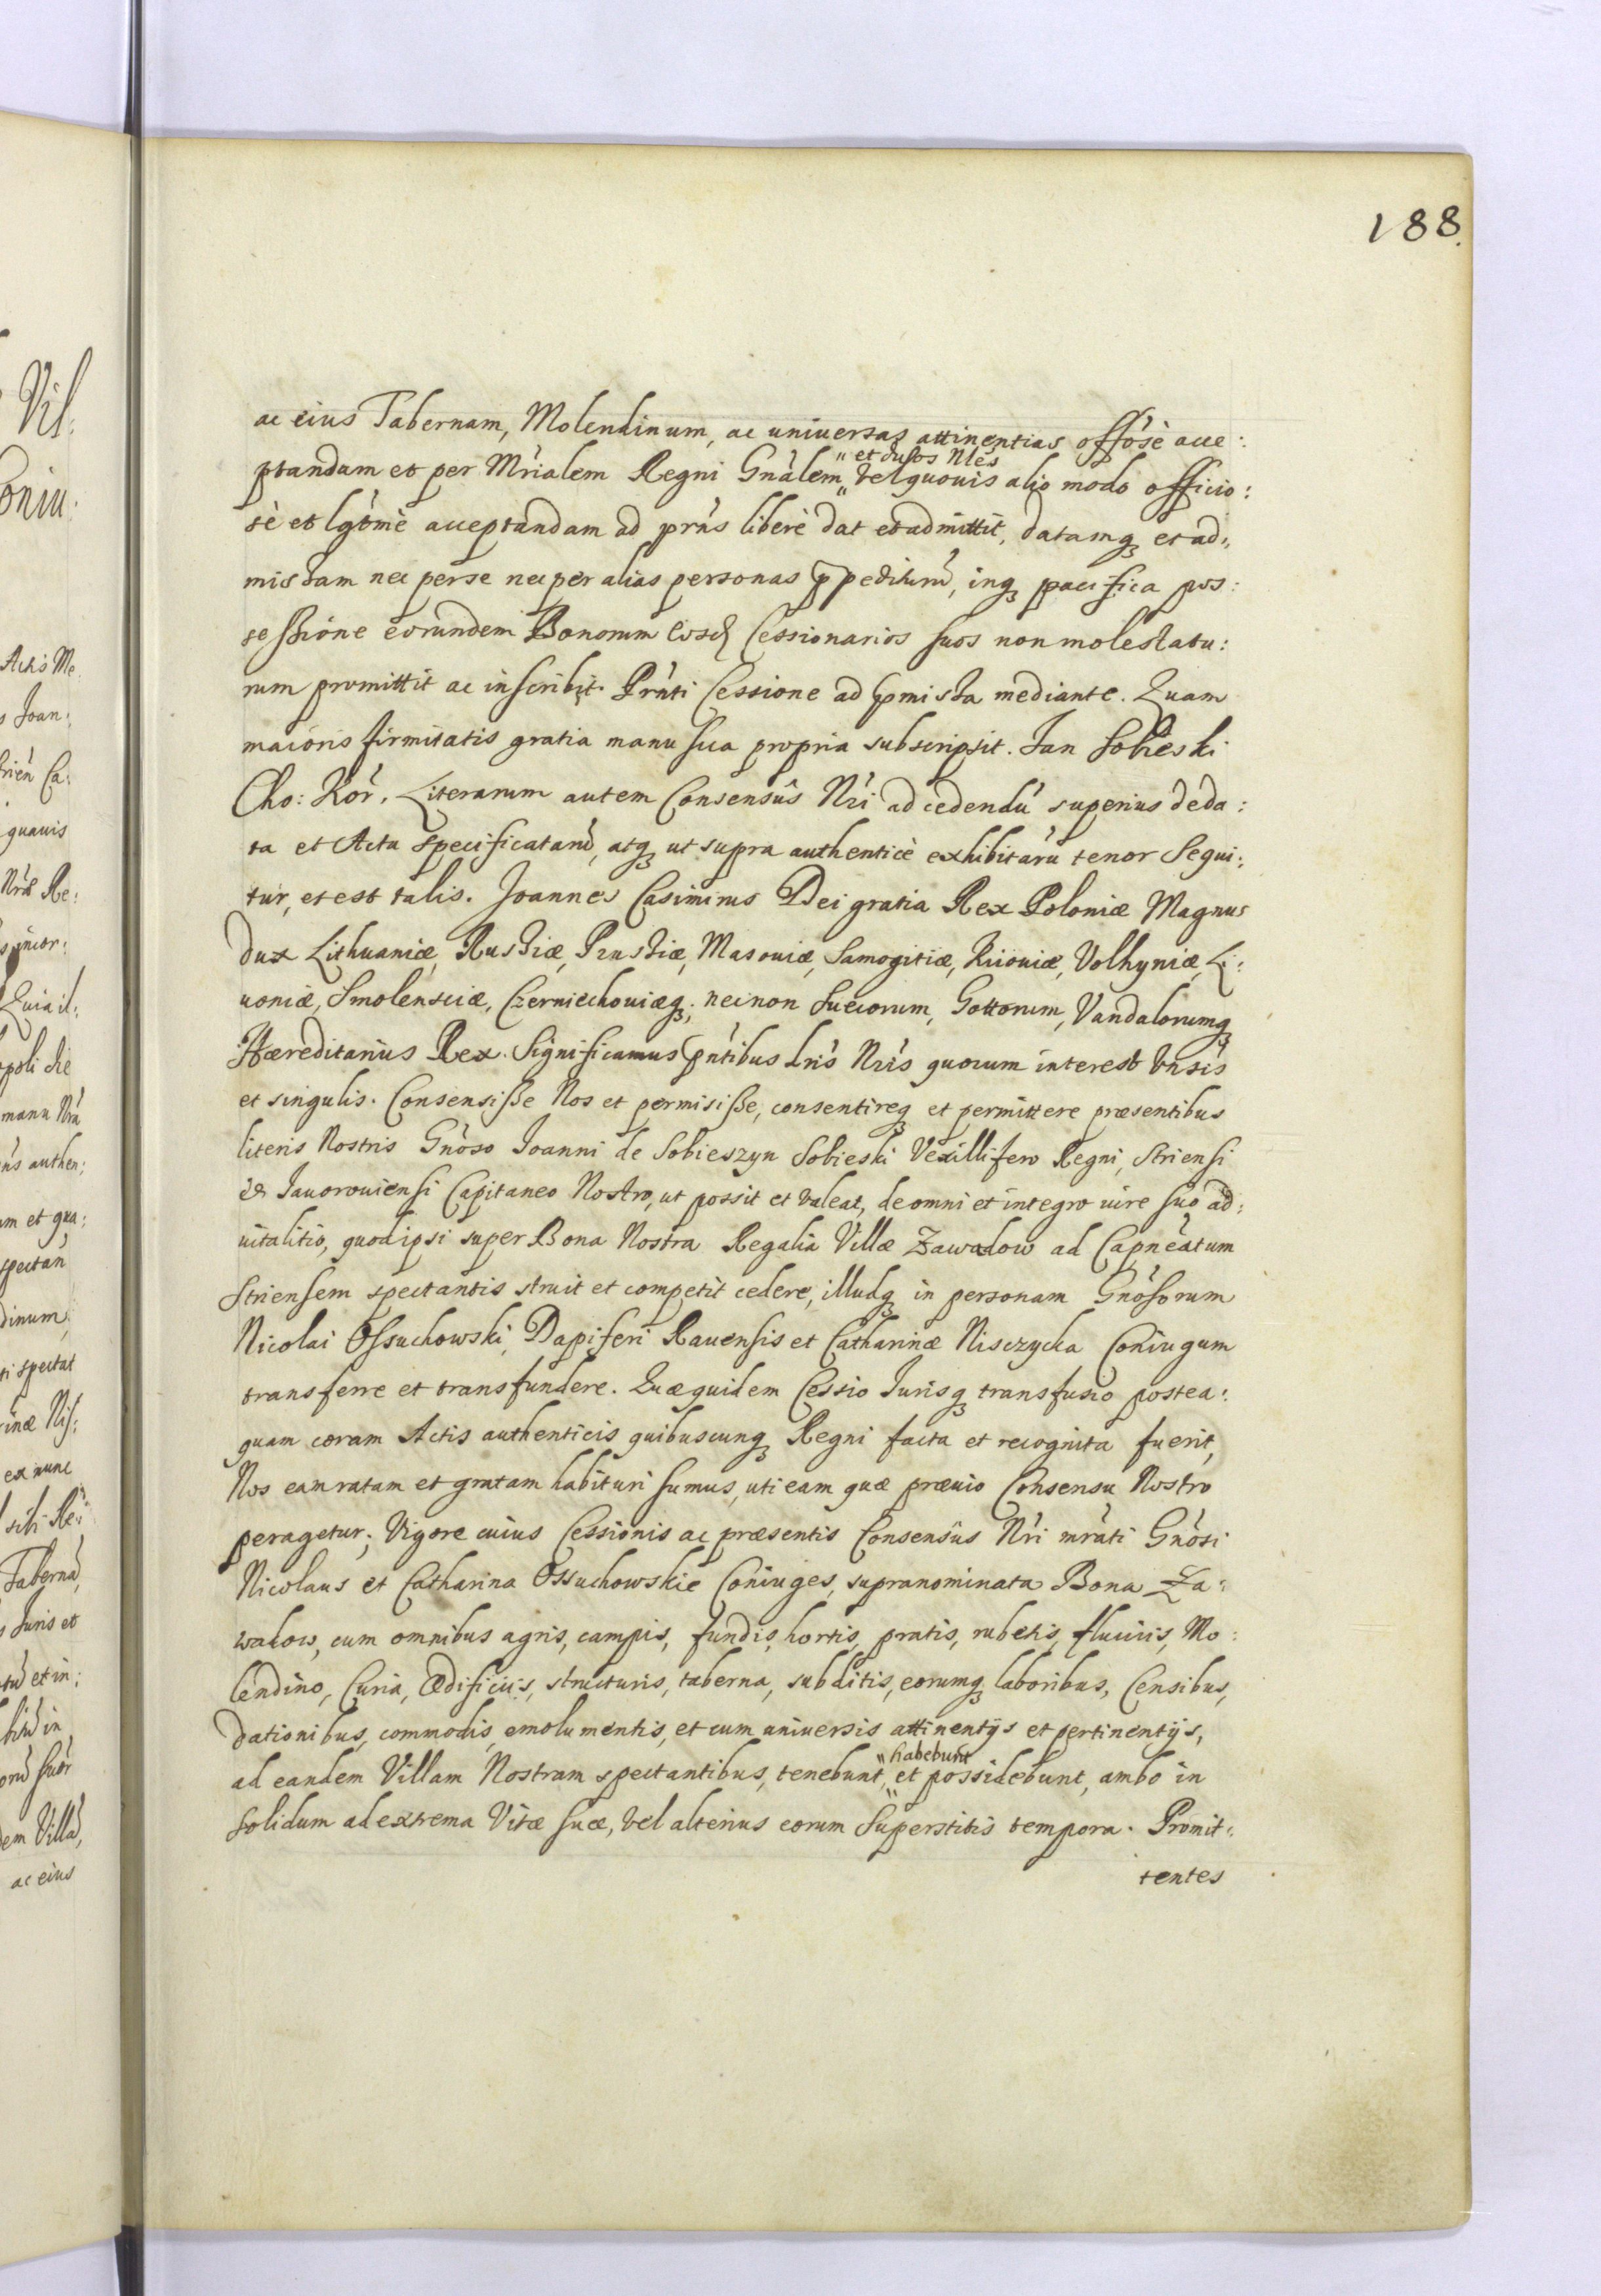 188.
ac eius Tabernam, Molendinum, ac universas attinentias offõsè acce:
ptandam et per Mrialem Regni Gnàlem „et dusos Nles vel quouis alio modo officio:
sè et lgtmè acceptandam ad prns liberè dat et admittit, datamq́ et ad„
missam nec per se nec per alias personas ꝓpediturũ, inq́ pacifica pos:
sessione eorundem Bonorum eosd Cessionarios suos non molestatu:
rum promittit ac inscribit. Prnti Cessione ad prmissa mediante. Quam
maioris firmitatis gratia manu sua propria subscripsit. Jan Sobieski
Cho: Kor. Literarum autem Consensûs Nri ad cedendũ superius de da:
ta et Actu specificatarũ, atq́ ut supra authenticè exhibitarũ tenor sequi:
tur, et est talis. Joannes Casimirus Dei gratia Rex Poloniæ Magnus
dux Lithuaniæ, Russiæ, Prussiæ, Masouiæ, Samogitiæ, Kiiouiæ, Volhyniæ, Li:
uoniæ, Smolensciæ, Czerniechouiæq́; necnon Suecorum, Gottorum, Vandalorumq́
Hæreditarius Rex. Significamus pntibus Lris Nris quorum interest vnsis
et singulis. Consensisse Nos et permisisse, consentireq́ et permittere præsentibus
literis Nostris Gnòso Joanni de Sobieszyn Sobieski Vexillifero Regni, Striensi
et Jauorouiensi Capitaneo Nostro, ut possit et valeat, de omni et integro iure suo ad:
uitalitio, quod ipsi super Bona Nostra Regalia Villæ Zawadow ad Capneatum
Striensem spectantis struit et competit cedere, illudq́ in personam Gnòsorum
Nicolai Ossuchowski, Dapiferi Rauensis et Catharinæ Nisczycka Coniugum
transferre et transfundere. Quæquidem Cessio Jurisq́ transfusio postea:
quam coram Actis authenticis quibuscunq́ Regni facta et recognita fuerit,
Nos eam ratam et gratam habituri sumus, uti eam quæ præuio Consensu Nostro
peragetur; Vigore cuius Cessionis ac præsentis Consensûs Nri mrati Gnòsi
Nicolaus et Catharina Ossuchowskie Coniuges, supranominata Bona Za:
wadow, cum omnibus agris, campis, fundis, hortis, pratis, rubetis, fluuiis, Mo:
lendino, Curia, Ædificiis, structuris, taberna, subditis, eorumq́ laboribus, Censibus,
dationibus, commodis, emolumentis, et cum uniuersis attinentijs et pertinentijs,
ad eandem Villam Nostram spectantibus, tenebunt, „habebunt et possidebunt, ambo in
solidum ad extrema Vitæ suæ, vel alterius eorum superstitis tempora. Promit:
tentes